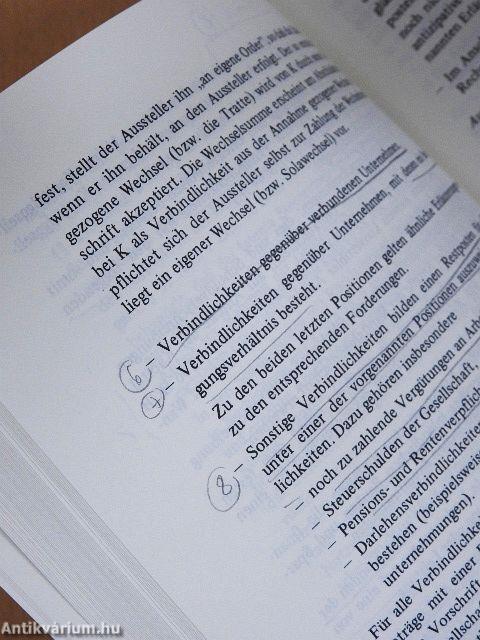 fest, stellt der Aussteller ihn „an eigene Order",
wenn er ihn behält, an den Aussteller erfolgt. Der
gezogene Wechsel (bzw. die Tratte) wird von K durch
schrift akzeptiert. Die Wechselsumme erscheint
bei K als Verbindlichkeit aus der Annahme gezogener Wechsel
pflichtet sich der Aussteller selbst zur Zahlung der
liegt ein eigener Wechsel (bzw. Solawechsel) vor.
6 – Verbindlichkeiten gegenüber verbundenen Unternehmen.
7 – Verbindlichkeiten gegenüber Unternehmen, mit denen
gungsverhältnis besteht.
Zu den beiden letzten Positionen gelten ähnliche
zu den entsprechenden Forderungen.
8 – Sonstige Verbindlichkeiten bilden einen Restposten
unter einer der vorgenannten Positionen
lichkeiten. Dazu gehören insbesondere
– noch zu zahlende Vergütungen an
– Steuerschulden der Gesellschaft,
– Pensions- und
– Darlehensverbindlichkeiten
bestehen (beispielsweise
unternehmungen).
Für alle
träge mit einer
Vorschrift
posten
noch
antizipative
nannten
– Im
Antikvárium.hu